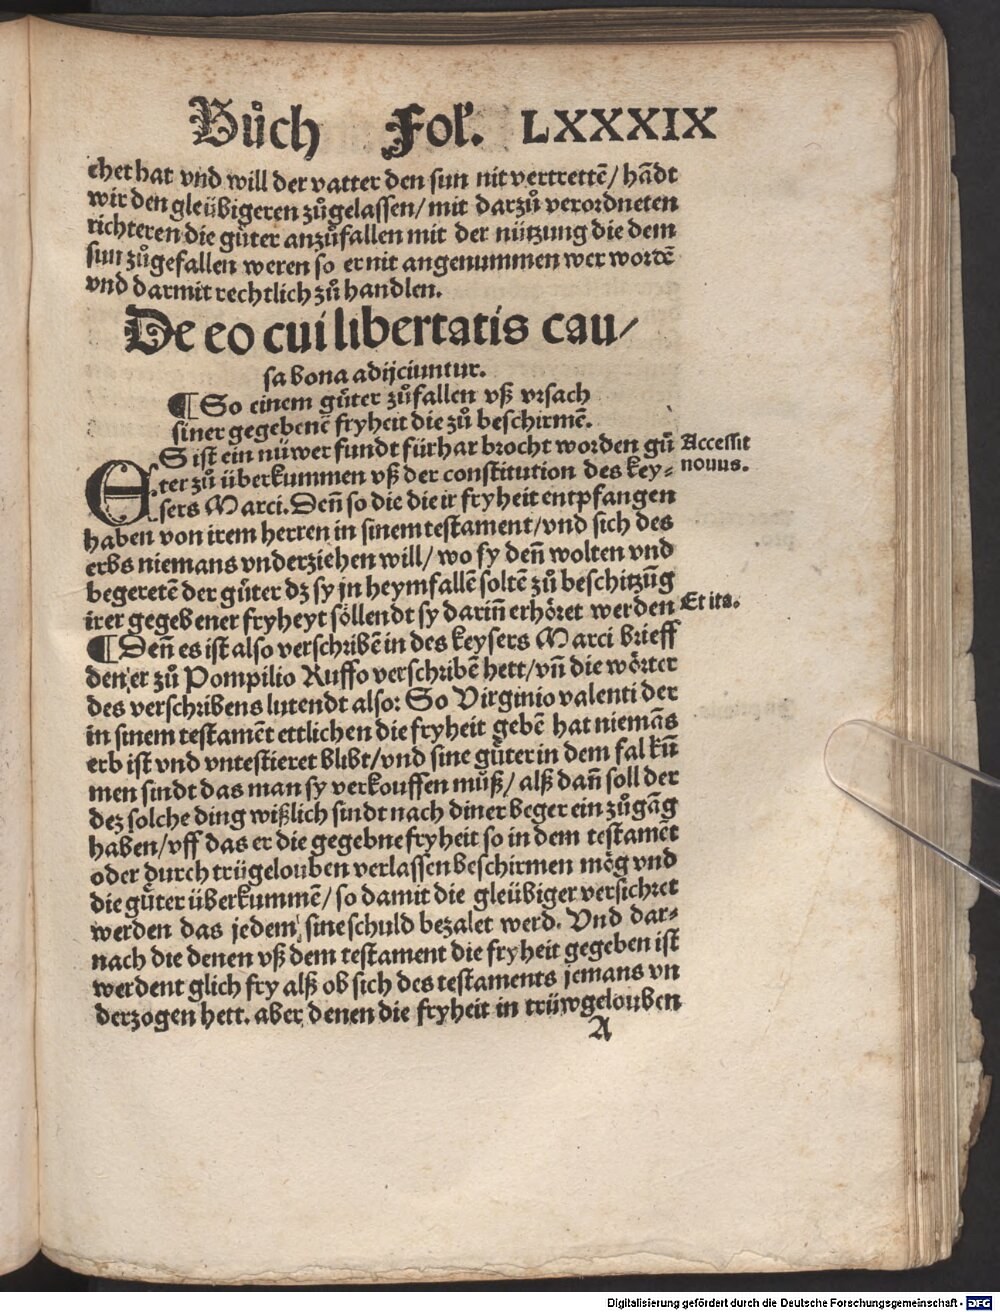 Bůch Fol. LXXXIX
chet hat vnd will der vatter den sun nit vertrettē/ hādt
wir den gleübigeren zůgelassen/ mit darzů verordneten
richteren die gůter anzůfallen mit der nützung die dem
sun zůgefallen weren so er nit angenummen wer wordē
vnd darmit rechtlich zů handlen.
De eo cui libertatis cau/
sa bona adijciuntur.
¶ So einem gůter zůfallen vß vrsach
siner gegebenē fryheit die zů beschirmē.
ES ist ein nüwer fundt fürhar brocht worden gů
Accessit
ter zů überkummen vß der constitution des key-
nouus.
sers Marci. Deñ so die die ir fryheit entpfangen
haben von irem herren in sinem testament/ vnd sich des
erbs niemans vnderziehen will/ wo sy deñ wolten vnd
begeretē der gůter dz sy jn heymfallē soltē zů beschitzūg
irer gegebener fryheyt söllendt sy dariñ erhöret werden
Et ita.
¶ Deñ es ist also verschribē in des keysers Marci brieff
den er zů Pompilio Ruffo verschribē hett/ vñ die wörter
des verschribens lutendt also: So Virginio valenti der
in sinem testamēt ettlichen die fryheit gebē hat niemās
erb ist vnd vntestieret blibt/ vnd sine gůter in dem fal kū
men sindt das man sy verkouffen můß/ alß dañ soll der
dez solche ding wißlich sindt nach diner beger ein zůgāg
haben/ vff das er die gegebne fryheit so in dem testamēt
oder durch trügelouben verlassen beschirmen mög vnd
die gůter überkummē/ so damit die gleübiger versichret
werden das jedem sine schuld bezalet werd. Vnd dar-
nach die denen vß dem testament die fryheit gegeben ist
werdent glich fry alß ob sich des testaments jemans vn
derzogen hett. aber denen die fryheit in trüwgelouben
A
Digitalisierung gefördert durch die Deutsche Forschungsgemeinschaft - DFG